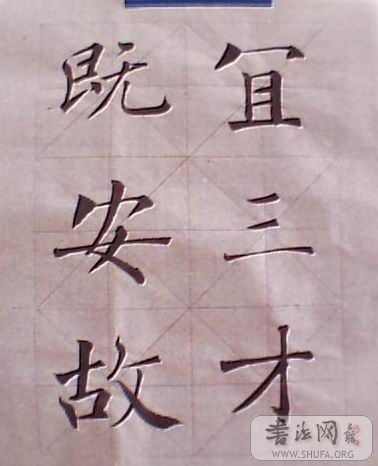 冝三才
既安故
书法网
WWW.SHUFA.ORG